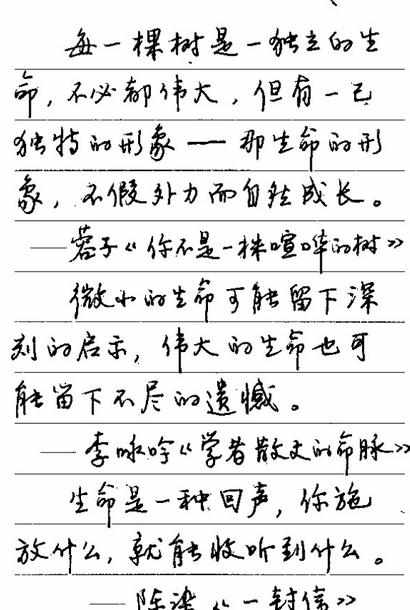 每一棵树是一独立的生
命，不必都伟大，但有一己
独特的形象——那生命的形
象，不假外力而自然成长。
——蓉子《你不是一株喧哗的树》
微小的生命可能留下深
刻的启示，伟大的生命也可
能留下不尽的遗憾。
——李咏吟《学者散文的命脉》
生命是一种回声，你施
放什么，就能收听到什么。
——陈 《一封信》